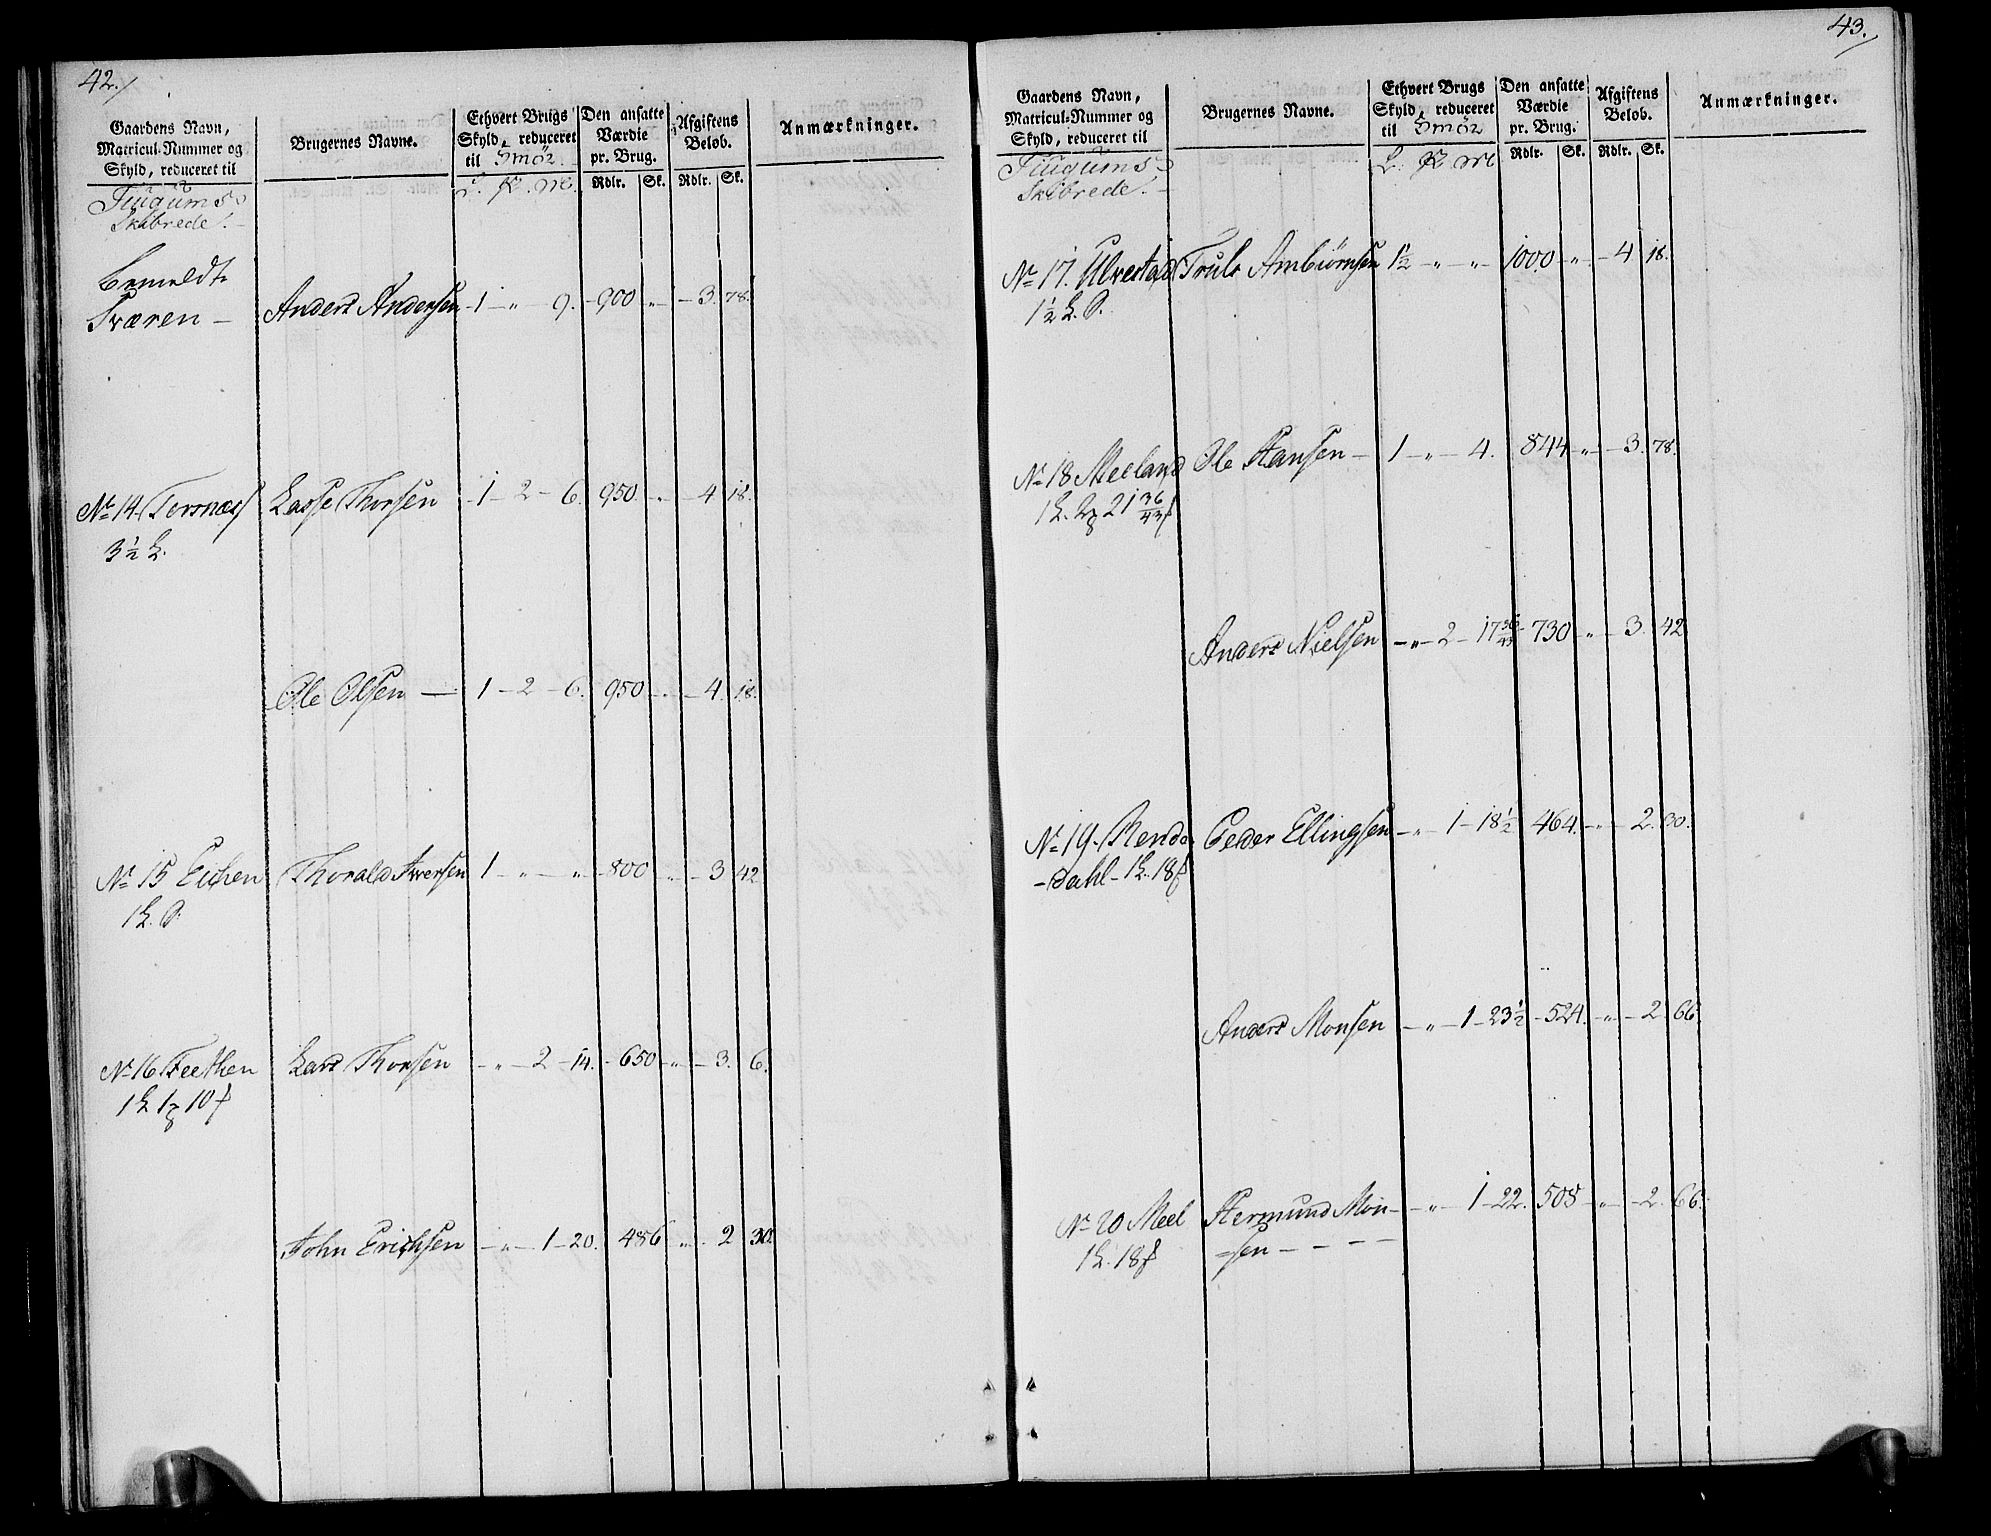 42./
Gaardens Navn,
Matricul-Nummer og
Skyld, reduceret til
Brugernes Navne.
Ethvert Brugs
Skyld, reduceret
til Smör.
Den ansatte
Værdie
pr. Brug.
Afgiftens
Beløb.
Anmærkninger.
L. Rdlr. Sk. Rdlr. Sk.
Tiugums
Skibrede.
Bemeldte
Sværen — Anders Andersen - 1 - „ - 9. - 900 „ - 3. 78.
No 14. Tersnæs Lasse Thorsen - 1 - 2 - 6. 950 „ - 4 18.
3 1/2 L.
Ole Olsen — 1 - 2 - 6. 950 „ - 4. 18.
No 15 Eichen Thorald Iversen 1 - „ - „ - 800 „ - 3 42
1 L.
No 16 Feethen Lars Thorsen - „ - 2 - 14. - 650 „ - 3. 6.
1 L 1 10
John Erichsen - „ - 1 - 20. 486 „ - 2 30.
43./
Gaardens Navn,
Matricul-Nummer og
Skyld, reduceret til
Brugernes Navne.
Ethvert Brugs
Skyld, reduceret
til Smör
Den ansatte
Værdie
pr. Brug.
Afgiftens
Beløb.
Anmærkninger.
L. Rdlr. Sk. Rdlr. Sk.
Tiugums
Skibrede.
No 17. Ulvestad Truls Ambiörnsen 1 1/2 - „ - „ - 1000 „ - 4 18.
1 1/2 L.
No 18 Meeland Ole Hansen - 1 - „ - 4. 844 „ - 3. 78.
1 L. 2 21 36/43
Anders Nielsen - „ - 2 - 17 36/43 - 730 „ - 3. 42
No 19. Renda Peder Ellingsen - „ - 1 - 18 1/2 464. „ - 2. 30.
- dahl - 1 L. 18
Anders Monsen - „ - 1 - 23 1/2 - 524. „ - 2. 66.
No 20 Meel Hermund Mon- - „ - 1 - 22. 508 „ - 2. 66.
1 L. 18 -sen - - - -